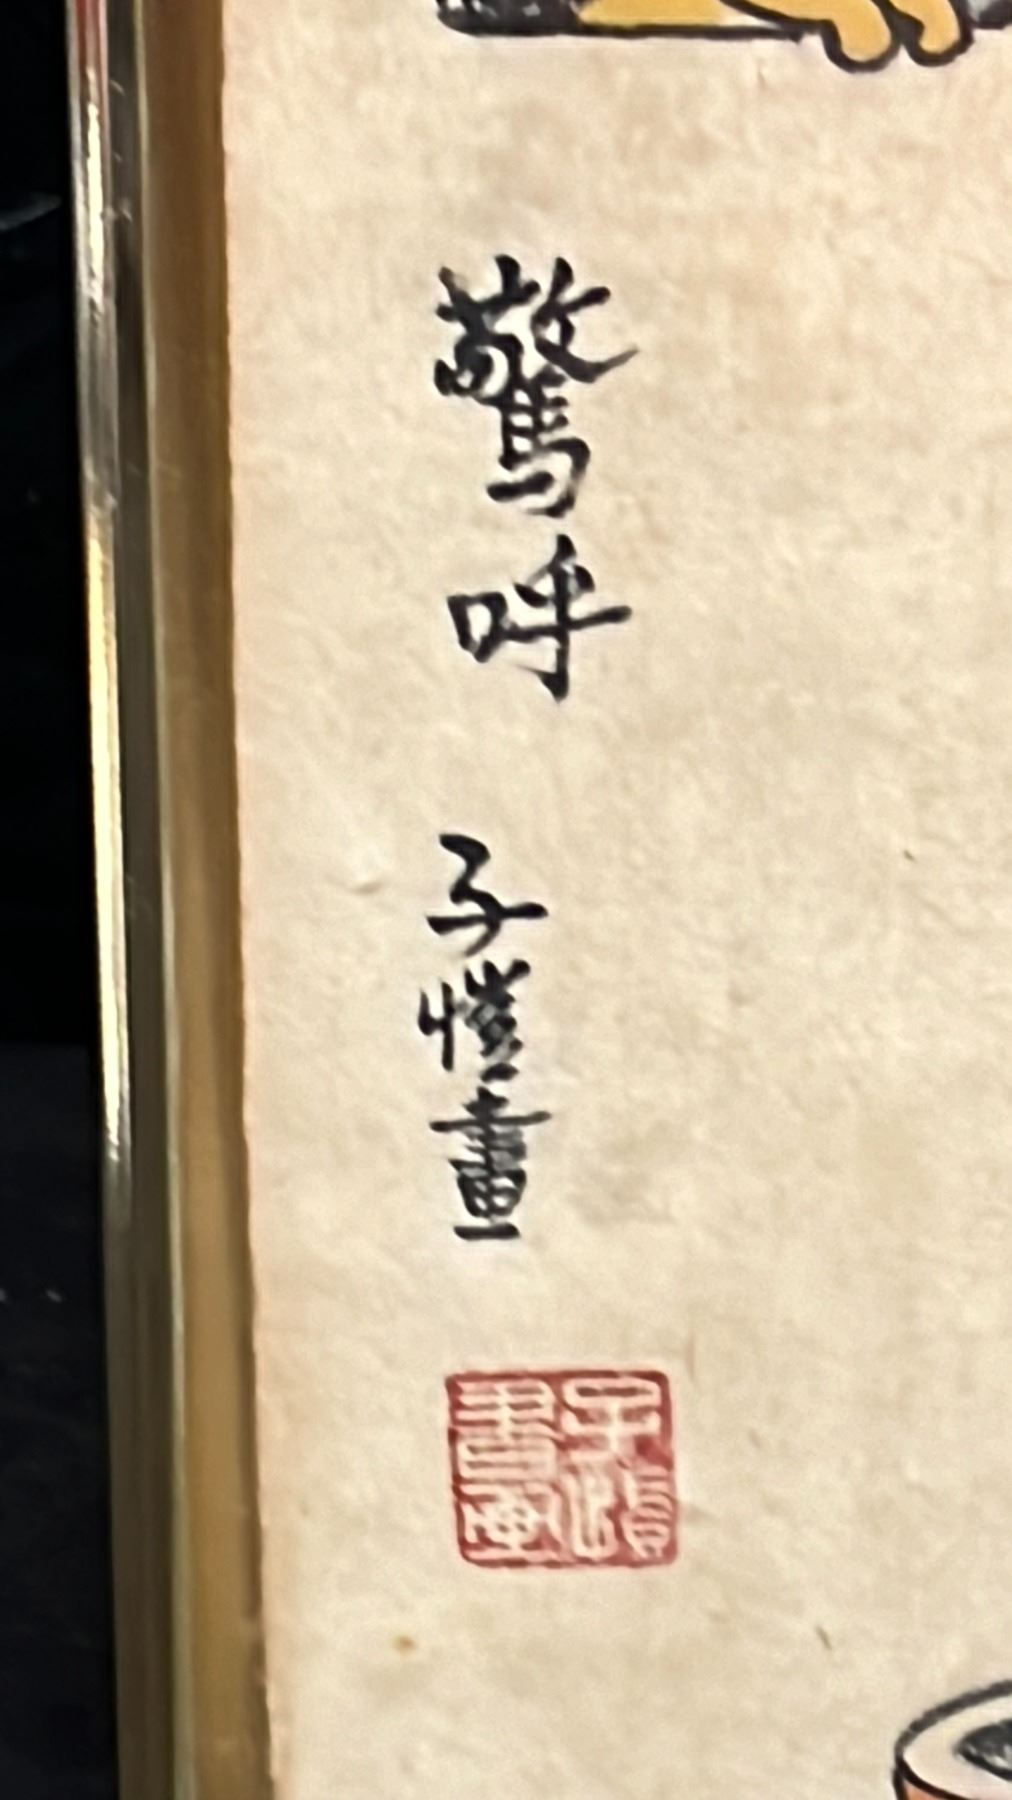 驚呼 子愷畫
子愷書画